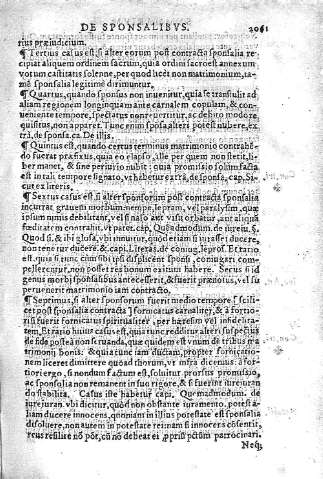 DE SPONSALIBVS.
rius præiudicium.
¶ Tertius casus est, si alter eorum post contracta sponsalia re
cipiat aliquem ordinem sacrum, quia ordini sacro est annexum
votum castitatis solenne, per quod licet non matrimonium, ta-
mē sponsalia legitimè dirimuntur.
¶ Quartus, quando sponsus non inuenitur, quia se transtulit ad
aliam regionem longinquam ante carnalem copulam, & con-
ueniente tempore, spectatus non reuertitur, ac debito modo re
quisitus, non apparet. Tunc enim sponsa alteri potest nubere, ex
trà, de sponsa. ca. De illis.
¶ Quintus est, quando certus terminus matrimonio contrahē-
do fuerat præfixus, quia eo elapso, ille per quem non stetit, li-
ber manet, & sine periurio nubit: quia promissio solùm facta
est in tali tempore signato, vt habetur extrà, de sponsa. cap. Si-
cut ex literis.
¶ Sextus casus est, si alter sponsorum post contracta sponsalia
incurrat grauem morbum, nempe lepram, vel paralysim, quæ
ipsum nimis debilitant, vel si naso aut visu orbatur, aut aliqua
fœditatem contrahit. vt patet. cap. Quemadmodum. de iureiu. §.
Quod si. & ibi glosa, vbi innuitur, quòd etiam si iurasset ducere,
non tenetur ducere. & capi. Literas. de coniug. lepros. Et ratio
est, quia si tunc, cùm sibi ipsi displicent sponsi, coniugari com-
pellerentur, non posset res bonum exitum habere. Secus si id
genus morbi sponsalibus antecesserit, & fuerit prænotus, vel su
peruenerit matrimonio iam contracto.
¶ Septimus, si alter sponsorum fuerit medio tempore [ scili-
cet post sponsalia contracta ] fornicatus carnaliter, & à fortio-
ri si fuerit fornicatus spiritualiter, per hæresim vel infidelita-
tem. Et ratio huius casus est, quia tunc redditur alteri suspectus
de fide posteà non seruanda, quæ quidem est vnum de tribus ma
trimonij bonis. Et quia tunc iam ductam, propter fornicatio-
nem liceret dimittere quoad thorum, vt infrà dicemus: à for-
tiori ergo, si nondum factum est, soluitur prorsus promissio,
ac sponsalia non remanent in suo rigore, & si fuerint iureiuran
do stabilita. Casus iste habetur capi. Quemadmodum. de
iureiuran. vbi dicitur, quòd non obstante iuramento, potest a-
liam ducere innocens, quoniam in illius potestate est sponsalia
dissoluere, non autem in potestate rei: nam si innocens cōsentit,
reus resilire nō pōt, cū nō debeat ei ppriū pctūm patrocinari.
Neq;